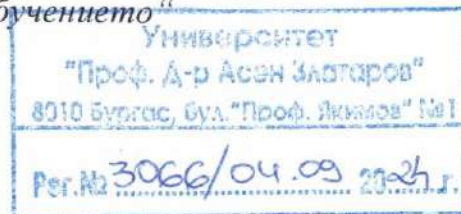 бучението“
Университет
"Проф. Д-р Асен Златаров"
8010 Бургас, бул. "Проф. Якимов" №1
Рег.№ 3066/04.09 2024 г.